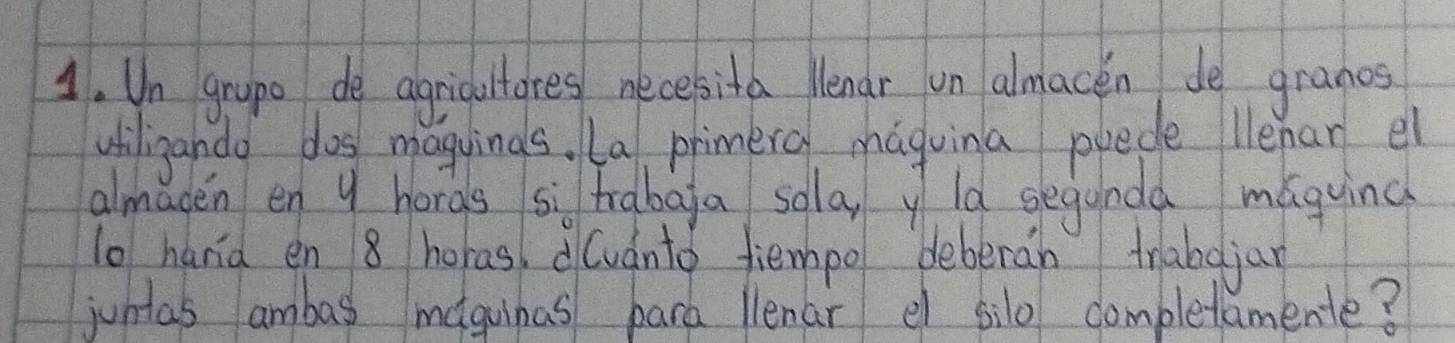 1. Un grupo de agricultores necesita llenar un almacén de granos
utilizando dos máquinas. La primera máquina puede llenar el
almacén en 4 horas si trabaja sola, y la segunda máquina
lo haría en 8 horas. ¿Cuánto tiempo deberán trabajar
juntas ambas máquinas para llenar el silo completamente?